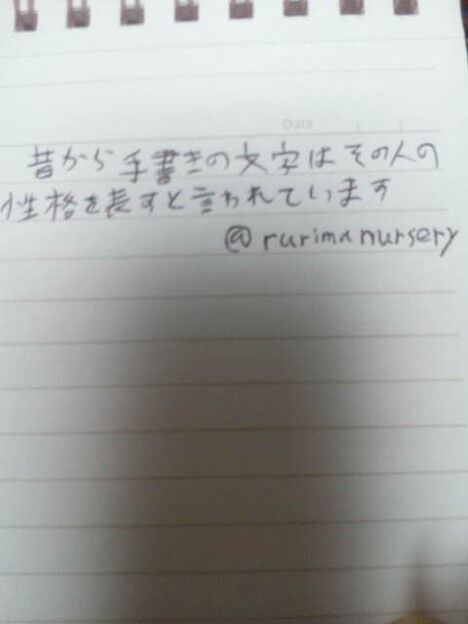 DATE
昔から手書きの文字はその人の
性格を表すと言われています
@rurimanursery